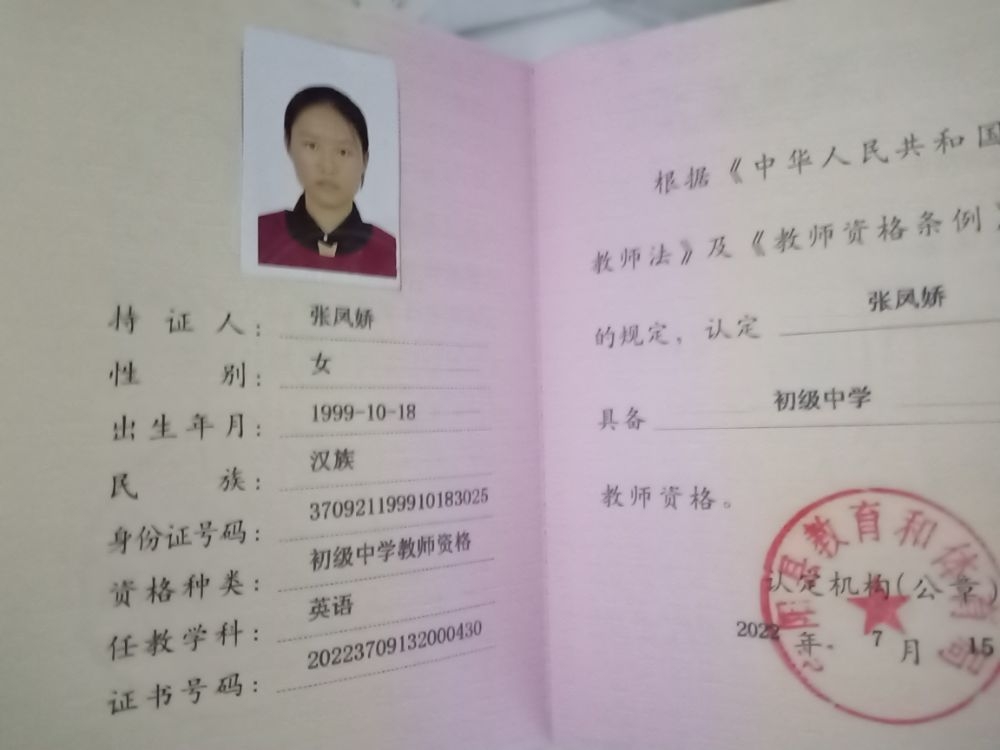 持证人：张凤娇
性别：女
出生年月：1999-10-18
民族：汉族
身份证号码：370921199910183025
资格种类：初级中学教师资格
任教学科：英语
证书号码：20223709132000430
根据《中华人民共和国
教师法》及《教师资格条例》
的规定，认定 张凤娇
具备 初级中学
教师资格。
县教育和体育局
认定机构(公章)
2022年7月15